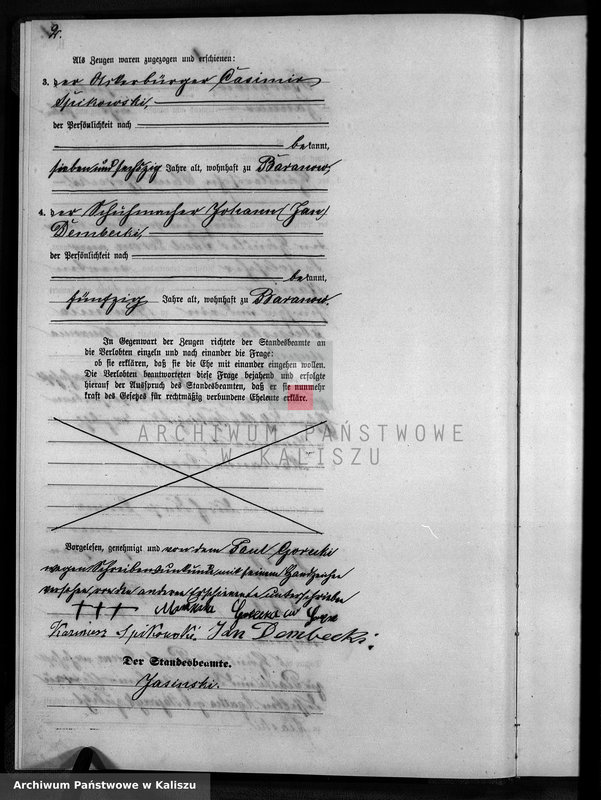 Als Zeugen waren zugezogen und erschienen:
3. der Ackerbürger Casimir
Spikowski,
der Persönlichkeit nach
bekannt,
siebenundsechszig Jahre alt, wohnhaft zu Baranow,
4. der Schuhmacher Johann (Jan)
Dembecki,
der Persönlichkeit nach
bekannt,
fünfzig Jahre alt, wohnhaft zu Baranow.
In Gegenwart der Zeugen richtete der Standesbeamte an
die Verlobten einzeln und nach einander die Frage:
ob sie erklären, daß sie die Ehe mit einander eingehen wollen.
Die Verlobten beantworteten diese Frage bejahend und erfolgte
hierauf der Ausspruch des Standesbeamten, daß er sie nunmehr
kraft des Gesetzes für rechtmäßig verbundene Eheleute erkläre.
ARCHIWUM PAŃSTWOWE
W KALISZU
Vorgelesen, genehmigt und von dem Paul Gorecki
wegen Schreibensunkunde mit seinem Handzeichen
versehen, von den anderen Erschienenen unterschrieben
+++
Kazimierz Spikowski. Jan Dembecki.
Der Standesbeamte.
Jasinski.
Archiwum Państwowe w Kaliszu